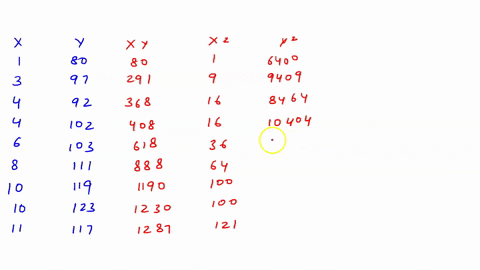 X Y XY X2 Y2
1 80 80 1 6400
3 97 291 9 9409
4 92 368 16 8464
4 102 408 16 10404
6 103 618 36
8 111 888 64
10 119 1190 100
10 123 1230 100
11 117 1287 121